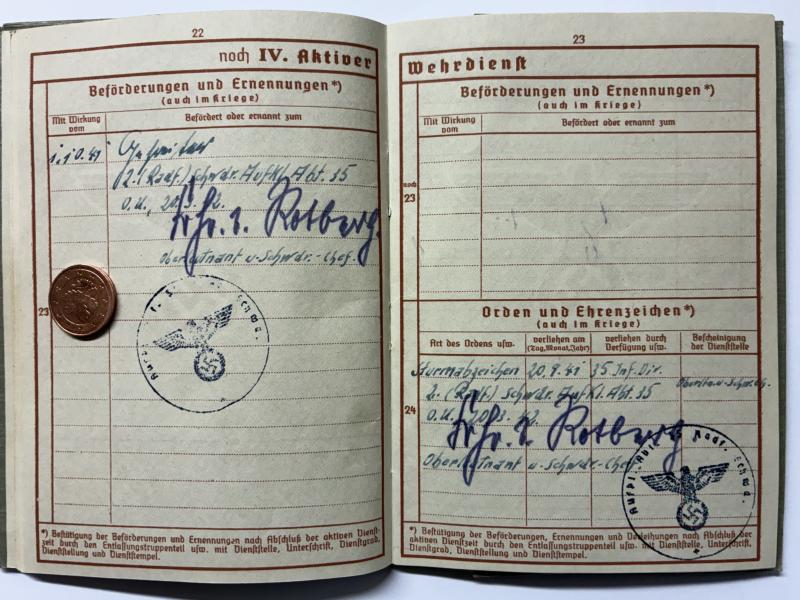 22
noch IV. Aktiver
Beförderungen und Ernennungen*)
(auch im Kriege)
Mit Wirkung vom
Befördert oder ernannt zum
1.10.41 Gefreiter
2. (Radf.) Schwdr. Aufkl. Abt. 35
O.U., 20.3.42.
Frhr. v. Rotberg.
Oberleutnant u. Schwdr.-Chef.
23
*) Bestätigung der Beförderungen und Ernennungen nach Abschluß der aktiven Dienst-
zeit durch den Entlassungstruppenteil usw. mit Dienststelle, Unterschrift, Dienstgrad,
Dienststellung und Dienststempel.
23
Wehrdienst
Beförderungen und Ernennungen*)
(auch im Kriege)
Mit Wirkung vom
Befördert oder ernannt zum
noch
23
Orden und Ehrenzeichen*)
(auch im Kriege)
Art des Ordens usw.
verliehen am (Tag, Monat, Jahr)
verliehen durch Verfügung usw.
Bescheinigung der Dienststelle
Sturmabzeichen 20.9.41 35 Inf. Div.
2. (Radf.) Schwdr. Aufkl. Abt. 35
24
O.U. 20.3.42.
Frhr. v. Rotberg
Oberleutnant u. Schwdr.-Chef
*) Bestätigung der Beförderungen, Ernennungen und Verleihungen nach Abschluß der
aktiven Dienstzeit durch den Entlassungstruppenteil usw. mit Dienststelle, Unterschrift,
Dienstgrad, Dienststellung und Dienststempel.